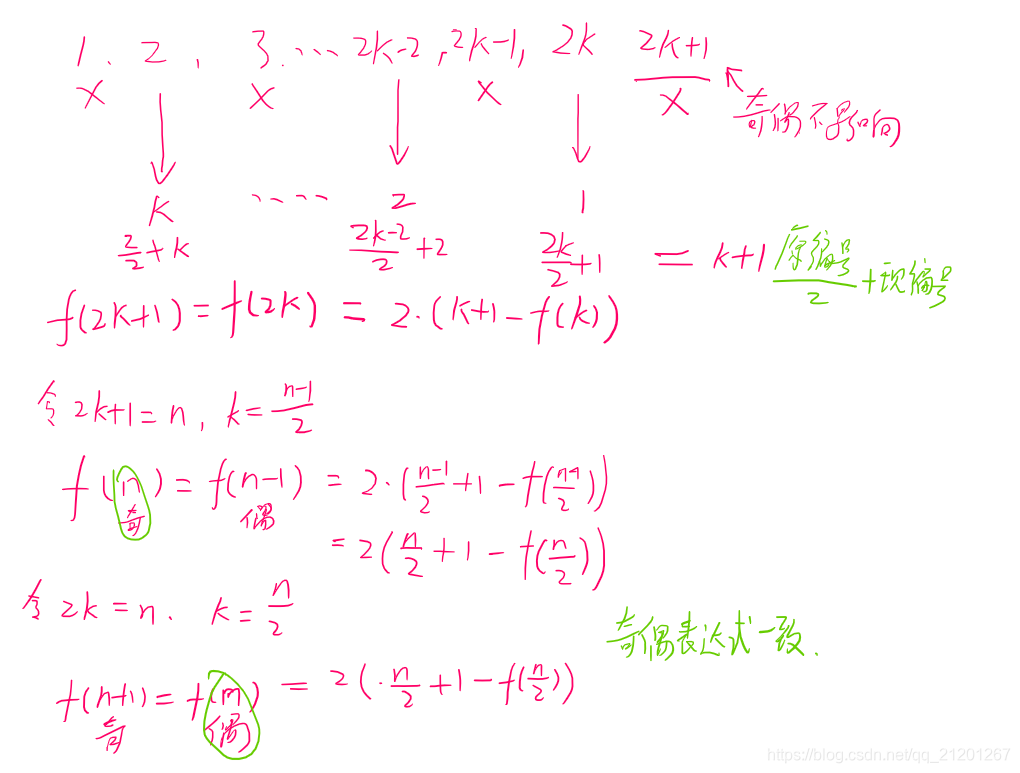 1. 2, 3. ···· 2k-2, 2k-1, 2k 2k+1
x x x x 奇偶不影响
k ···· 2 1
2/2+k (2k-2)/2+2 2k/2+1 = k+1 原编号/2+现编号
f(2k+1) = f(2k) = 2·(k+1-f(k))
令 2k+1=n, k=(n-1)/2
f(n) = f(n-1) = 2·((n-1)/2+1-f((n-1)/2))
奇 偶
=2(n/2+1-f(n/2))
令 2k=n. k=n/2
奇偶表达式一致.
f(n+1)=f(n) = 2(·n/2+1-f(n/2))
奇 偶
https://blog.csdn.net/qq_21201267